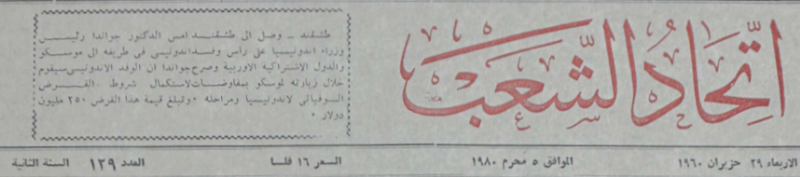 اتحاد الشعب
طشقند ــ وصل الى طشقند امس الدكتور جواندا رئيس
وزراء اندونيسيا على رأس وفد اندونيسي في طريقه الى موسكو
والدول الاشتراكية الاوربية وصرح جواندا ان الوفد الاندونيسي سيقوم
خلال زيارته لموسكو بمفاوضات لاستكمال شروط القرض
السوفياتي لاندونيسيا ومراحله ٠ وتبلغ قيمة هذا القرض ٢٥٠ مليون
دولار ٠
الاربعاء ٢٩ حزيران ١٩٦٠ الموافق ٥ محرم ١٩٨٠ السعر ١٦ فلسا العدد ١٢٩ السنة الثانية